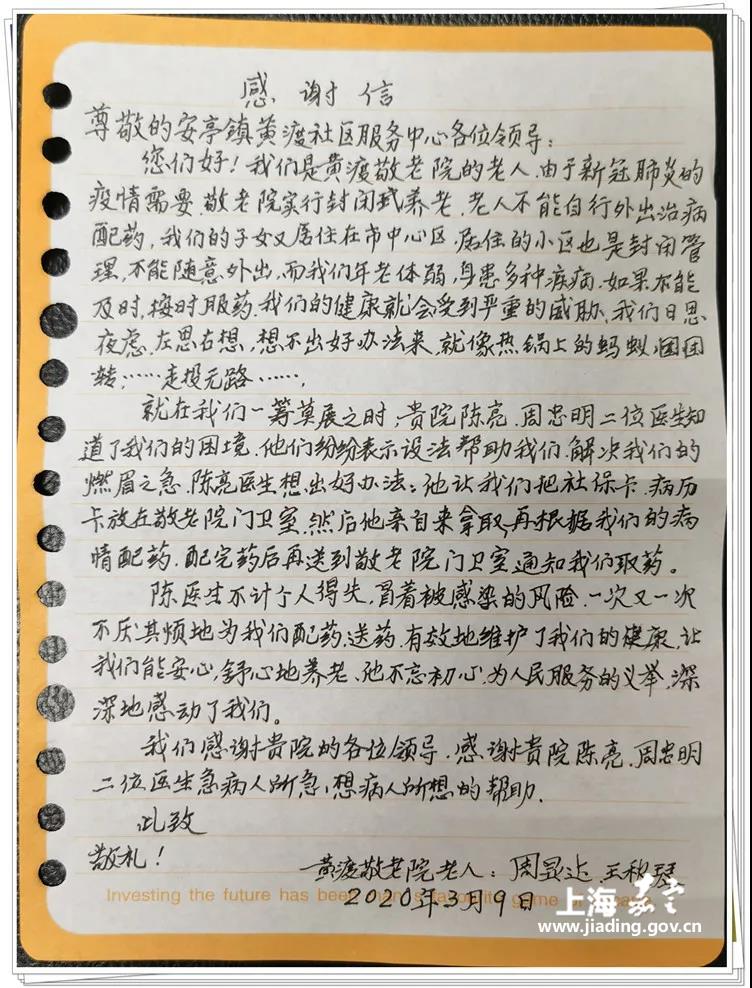 感谢信
尊敬的安亭镇黄渡社区服务中心各位领导：
您们好！我们是黄渡敬老院的老人，由于新冠肺炎的
疫情需要，敬老院实行封闭式养老，老人不能自行外出治病
配药，我们的子女又居住在市中心区，居住的小区也是封闭管
理，不能随意外出，而我们年老体弱，身患多种疾病，如果不能
及时，按时服药，我们的健康就会受到严重的威胁，我们日思
夜虑，左思右想，想不出好办法来，就像热锅上的蚂蚁，团团
转，……走投无路……，
就在我们一筹莫展之时，贵院陈亮、周忠明二位医生知
道了我们的困境，他们纷纷表示设法帮助我们，解决我们的
燃眉之急，陈亮医生想出好办法：他让我们把社保卡、病历
卡放在敬老院门卫室，然后他亲自来拿取，再根据我们的病
情配药，配完药后再送到敬老院门卫室通知我们取药。
陈医生不计个人得失，冒着被感染的风险，一次又一次
不厌其烦地为我们配药、送药，有效地维护了我们的健康，让
我们能安心，舒心地养老，他不忘初心，为人民服务的义举，深
深地感动了我们。
我们感谢贵院的各位领导，感谢贵院陈亮、周忠明
二位医生急病人所急，想病人所想的帮助，
此致
敬礼！
黄渡敬老院老人：周显达、王秋琴
Investing the future has been man's favourite game of
2020年3月9日
上海嘉定
www.jiading.gov.cn